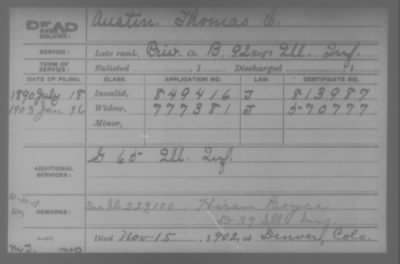 DEAD
SOLDIER: Austin, Thomas E.
SERVICE: Late rank, Priv. Co. B, 92 Reg't Ill. Inf.
TERM OF SERVICE: Enlisted 1 Discharged 1
DATE OF FILING. CLASS. APPLICATION NO. LAW. CERTIFICATE NO.
1890 July 18 Invalid, 849416 J 813987
1903 Jan 26 Widow, 777381 J 570777
Minor,
ADDITIONAL SERVICES: G 65 Ill. Inf.
229,100 Hiram Royce
REMARKS: 39 Ill Inf
Died Nov-15, 1902, at Denver, Colo.